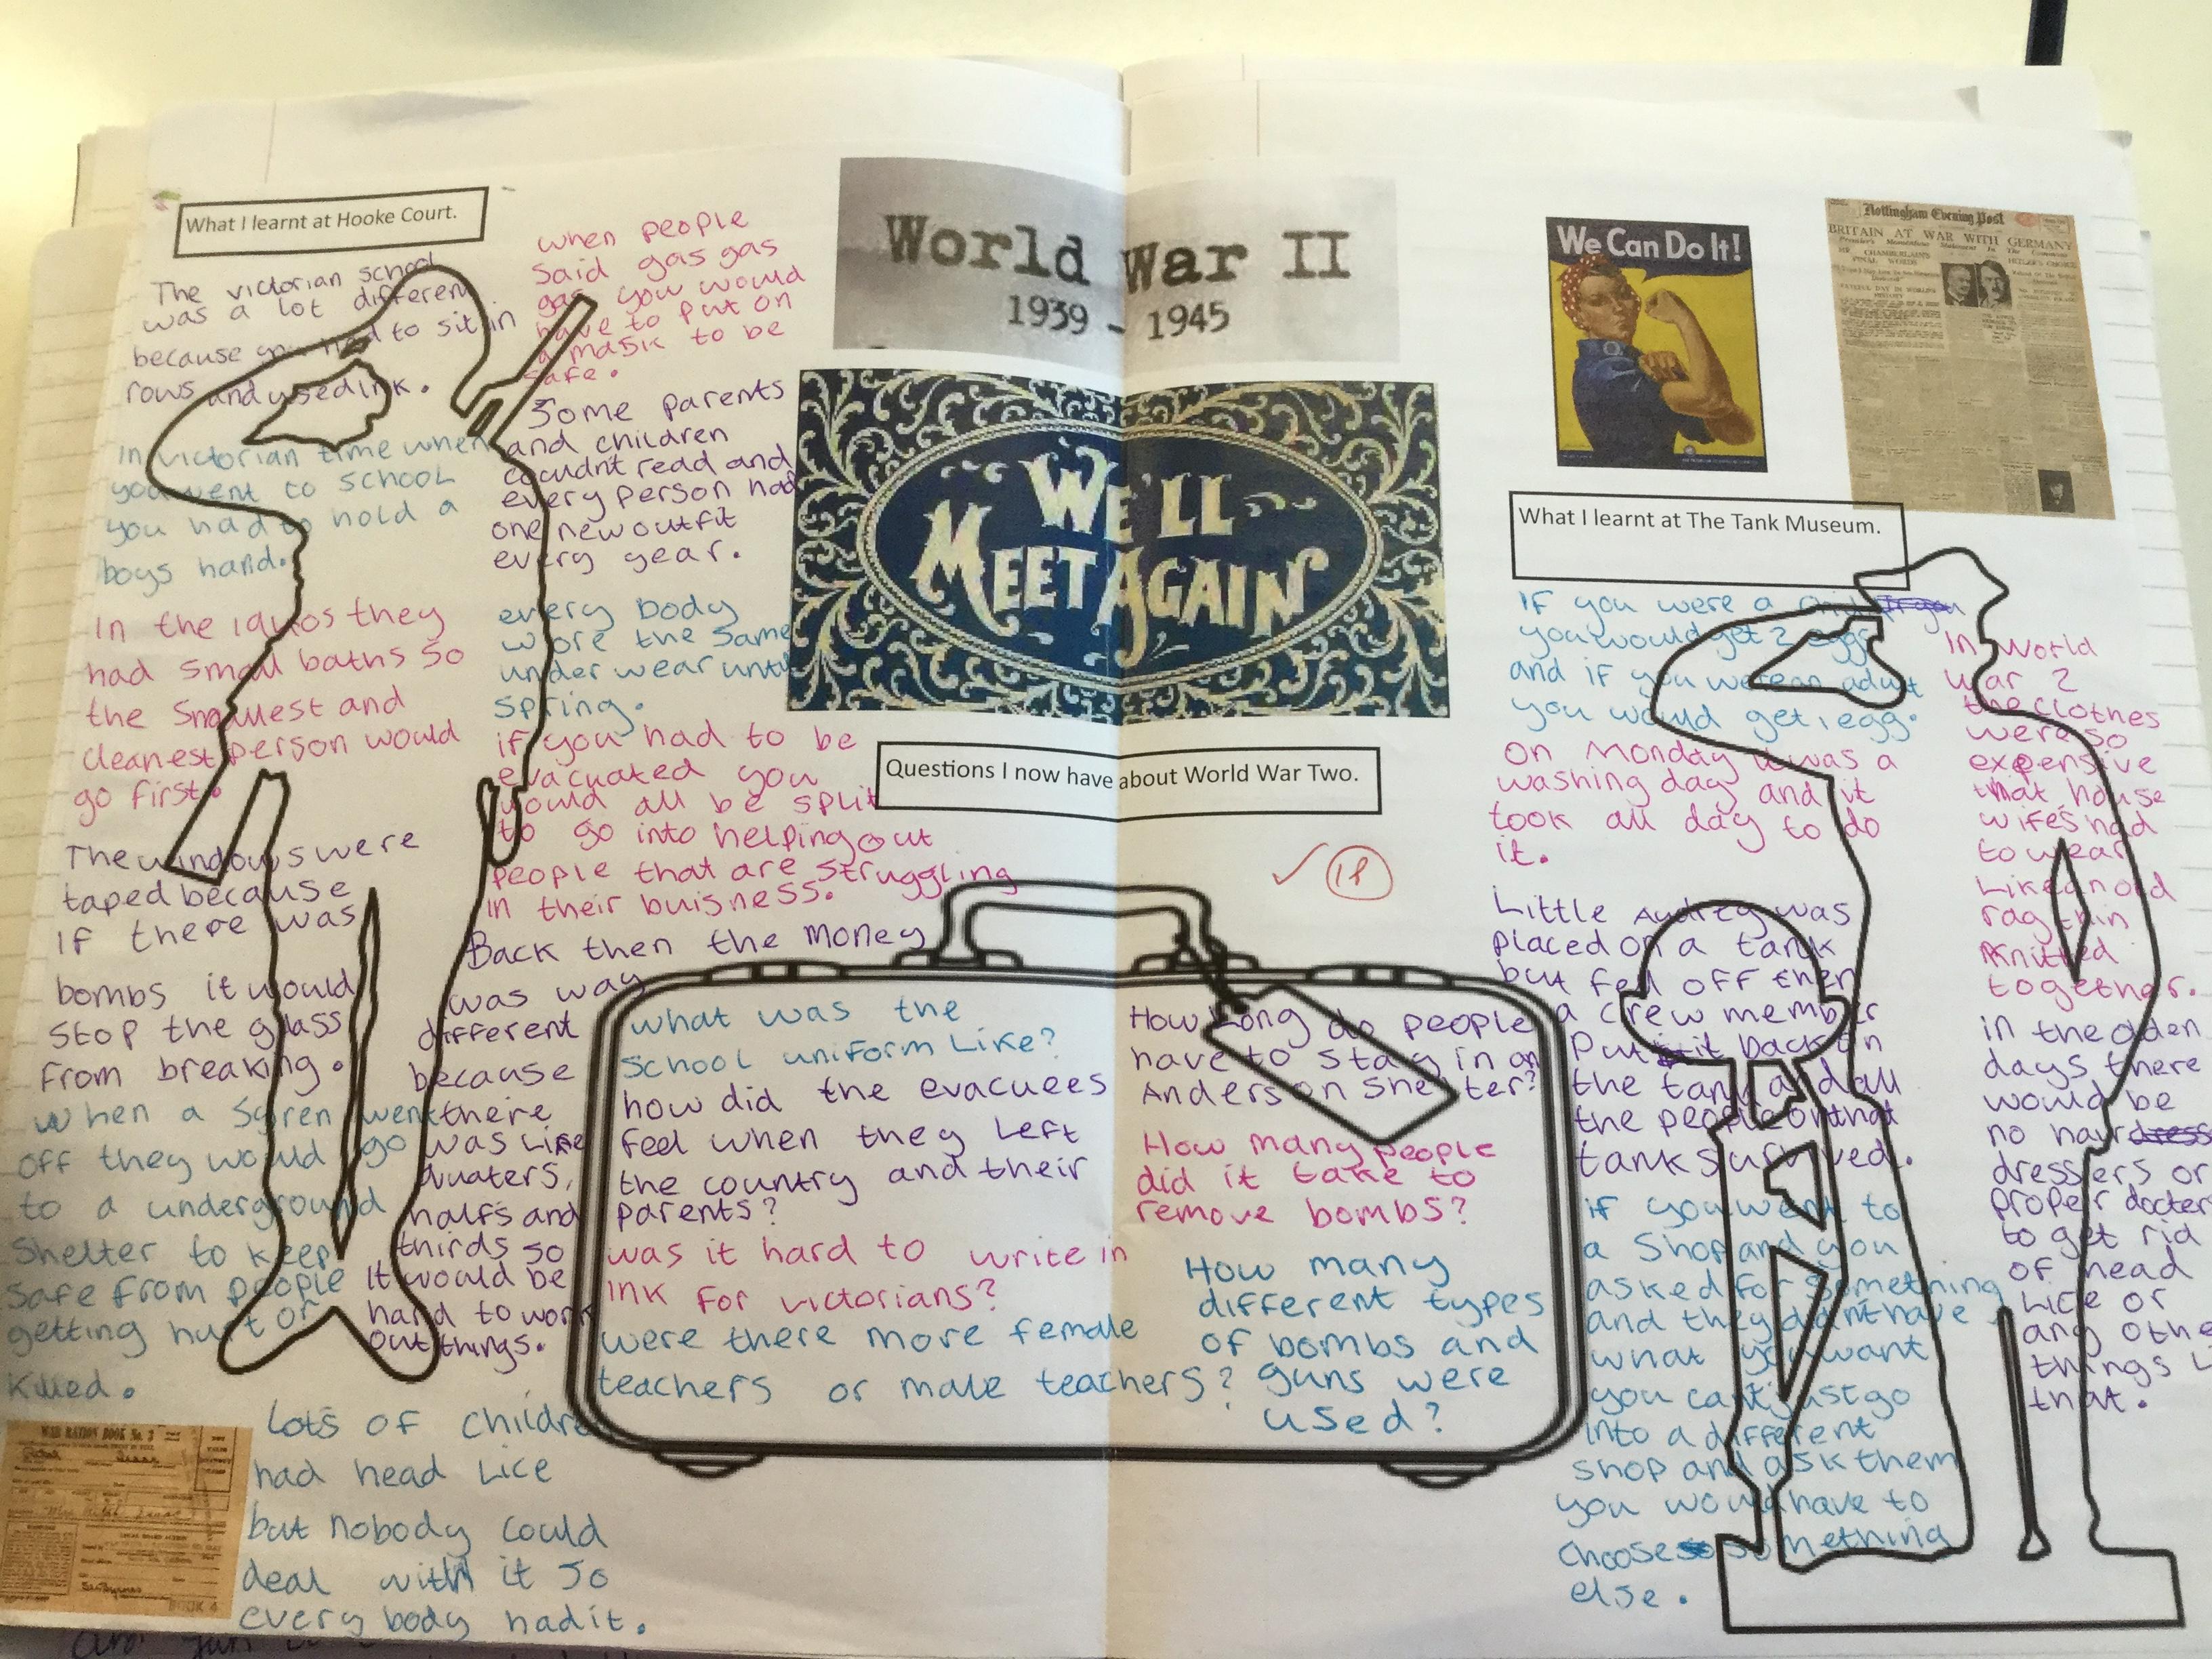 What I learnt at Hooke Court.
The victorian school
was a lot different
because you had to sit in
rows and used ink.
In victorian time when
you went to school
you had to hold a
boys hand.
In the 1940s they
had small baths so
the smallest and
cleanest person would
go first.
The windows were
taped because
if there was
bombs it would
stop the glass
from breaking.
When a Syren went
off they would go
to a underground
Shelter to keep
safe from people
getting hurt or
killed.
Lots of children
had head Lice
but nobody could
deal with it so
every body had it.
WAR RATION BOOK No. 3
BOOK 4
when people
said gas gas
gas you would
have to put on
a mask to be
safe.
Some parents
and children
coudnt read and
every person had
one new outfit
every year.
every body
wore the same
under wear until
spring.
if you had to be
evacuated you
would all be split
to go into helping out
people that are struggling
in their buisness.
Back then the money
was way
different
because
there
was Like
quaters,
halfs and
thirds so
it would be
hard to work
out things.
World War II
1939 - 1945
WE'LL
MEET AGAIN
Questions I now have about World War Two.
what was the
school uniform Like?
how did the evacuees
feel when they Left
the country and their
parents?
was it hard to write in
ink for victorians?
were there more female
teachers or male teachers?
How Long do people
have to stay in an
Anderson Shelter?
How many people
did it take to
remove bombs?
How many
different types
of bombs and
guns were
used?
We Can Do It!
Nottingham Evening Post
BRITAIN AT WAR WITH GERMANY
What I learnt at The Tank Museum.
If you were a
you would get 2 eggs
and if you were an adult
you would get 1 egg.
On Monday it was a
washing day and it
took all day to do
it.
Little Audrey was
placed on a tank
but fell off then
a crew member
Put it back on
the tank and all
the people on that
tank survived.
if you went to
a Shop and you
asked for something
and they didn't have
what you want
you can't just go
into a different
shop and ask them
you would have to
choose something
else.
In World
War 2
the clothes
were so
expensive
that house
wifes had
to wear
Like an old
rag thin
knitted
together.
in the olden
days there
would be
no hair
dressers or
proper docters
to get rid
of head
Lice or
any othe
things L
that.